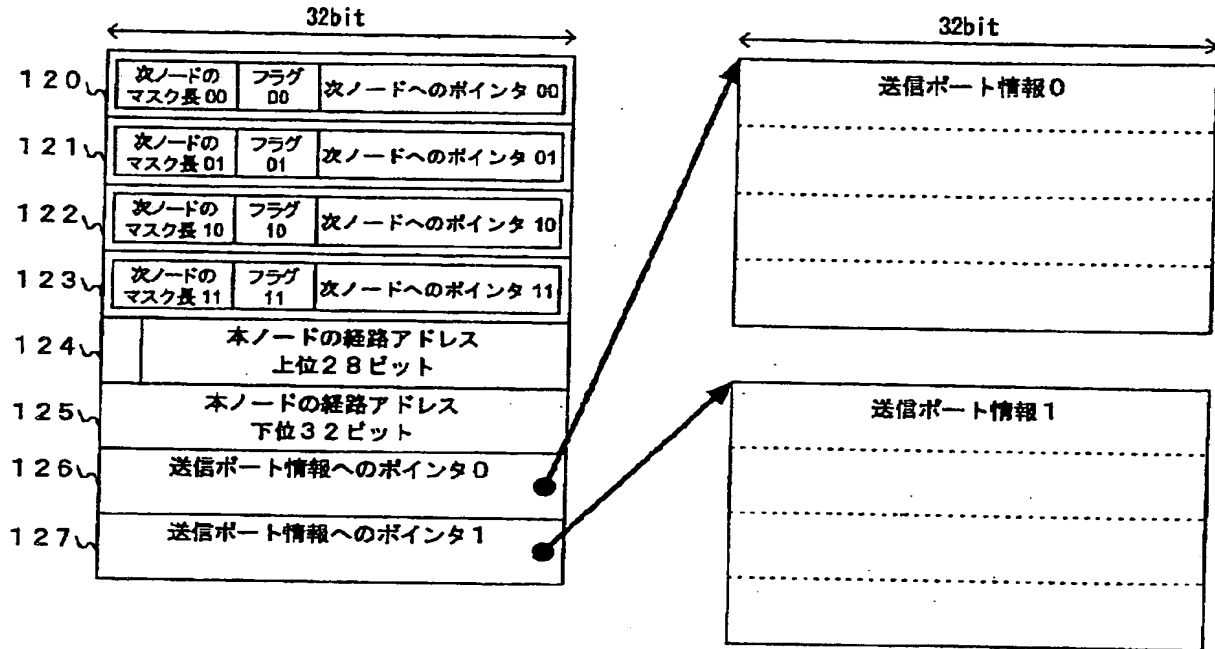 32bit
120
次ノードの
マスク長 00
フラグ
00
次ノードへのポインタ 00
121
次ノードの
マスク長 01
フラグ
01
次ノードへのポインタ 01
122
次ノードの
マスク長 10
フラグ
10
次ノードへのポインタ 10
123
次ノードの
マスク長 11
フラグ
11
次ノードへのポインタ 11
124
本ノードの経路アドレス
上位28ビット
125
本ノードの経路アドレス
下位32ビット
126
送信ポート情報へのポインタ0
127
送信ポート情報へのポインタ1
32bit
送信ポート情報0
送信ポート情報1